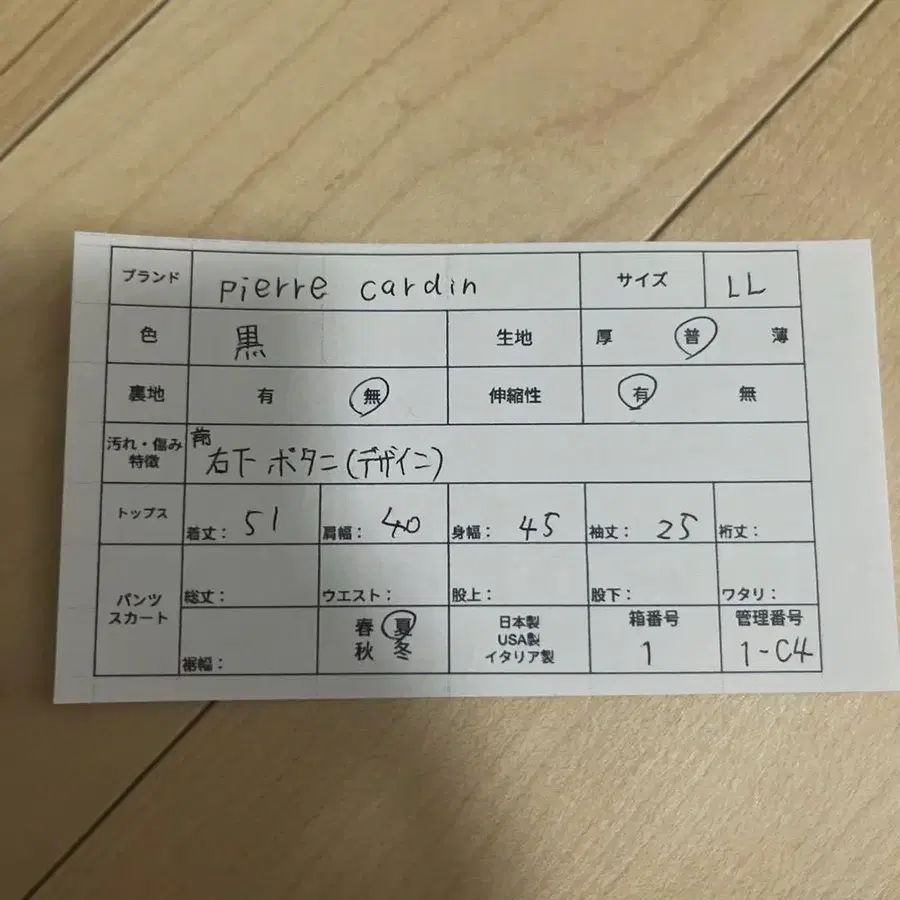 ブランド pierre cardin サイズ LL
色 黒 生地 厚 普 薄
裏地 有 無 伸縮性 有 無
汚れ・傷み
特徴
前
右下 ボタニ(デザイニ)
トップス 着丈: 51 肩幅: 40 身幅: 45 袖丈: 25 裄丈:
パンツ
スカート
総丈: ウエスト: 股上: 股下: ワタリ:
裾幅:
春 夏
秋 冬
日本製
USA製
イタリア製
箱番号
1
管理番号
1-C4